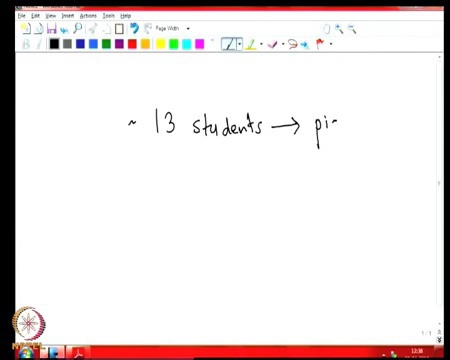 File Edit View Insert Actions Tools Help
Page Width
~ 13 students → pi
1/1
NPTEL
12:38